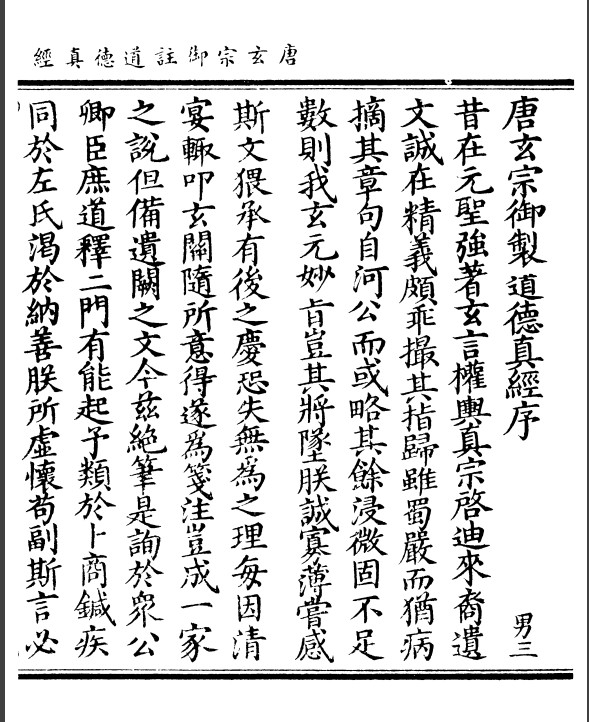 唐玄宗御註道德真經
唐玄宗御製道德真經序 男三
昔在元聖強著玄言權輿真宗啓迪來裔遺
文誠在精義頗乖撮其指歸雖蜀嚴而猶病
摘其章句自河公而或略其餘浸微固不足
數則我玄元妙旨豈其將墜朕誠寡薄嘗感
斯文猥承有後之慶恐失無爲之理每因清
宴輙叩玄關隨所意得遂爲箋注豈成一家
之說但備遺闕之文今茲絕筆是詢於衆公
卿臣庶道釋二門有能起予類於卜商鍼疾
同於左氏渴於納善朕所虛懷苟副斯言必